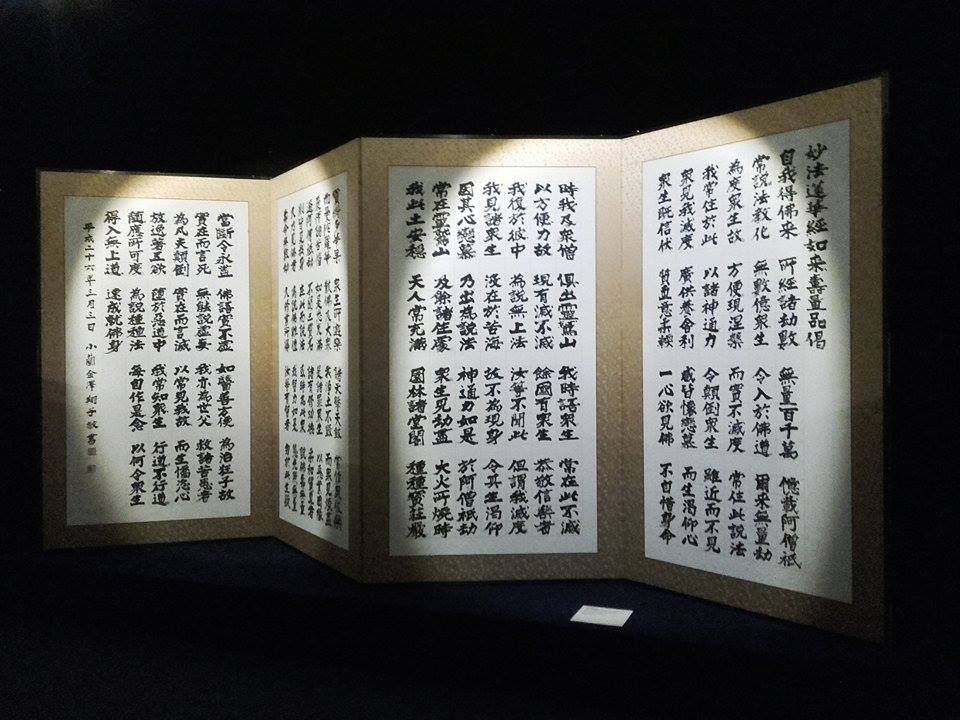 妙法蓮華経如来壽量品偈
自我得佛来 所経諸劫數 無量百千萬 億載阿僧祇
常説法教化 無數億衆生 令入於佛道 爾来無量劫
為度衆生故 方便現涅槃 而實不滅度 常住此説法
我常住於此 以諸神通力 令顛倒衆生 雖近而不見
衆見我滅度 廣供養舎利 咸皆懐戀慕 而生渇仰心
衆生既信伏 質直意柔軟 一心欲見佛 不自惜身命
時我及衆僧 倶出靈鷲山 我時語衆生 常在此不滅
以方便力故 現有滅不滅 餘國有衆生 恭敬信樂者
我復於彼中 為説無上法 汝等不聞此 但謂我滅度
我見諸衆生 没在於苦海 故不為現身 令其生渇仰
因其心戀慕 乃出為説法 神通力如是 於阿僧祇劫
常在靈鷲山 及餘諸住處 衆生見劫盡 大火所焼時
我此土安穏 天人常充満 園林諸堂閣 種種寶荘厳
寶樹多華果 衆生所遊樂 諸天撃天鼓 常作衆伎樂
雨曼陀羅華 散佛及大衆 我浄土不毀 而衆見焼盡
當斷令永盡 佛語實不虚 如醫善方便 為治狂子故
實在而言死 無能説虚妄 我亦為世父 救諸苦患者
為凡夫顛倒 實在而言滅 以常見我故 而生憍恣心
放逸著五欲 墮於惡道中 我常知衆生 行道不行道
隨應所可度 為説種種法 毎自作是念 以何令衆生
得入無上道 速成就佛身
平成二十六年三月三日 小蘭金澤翔子敬書